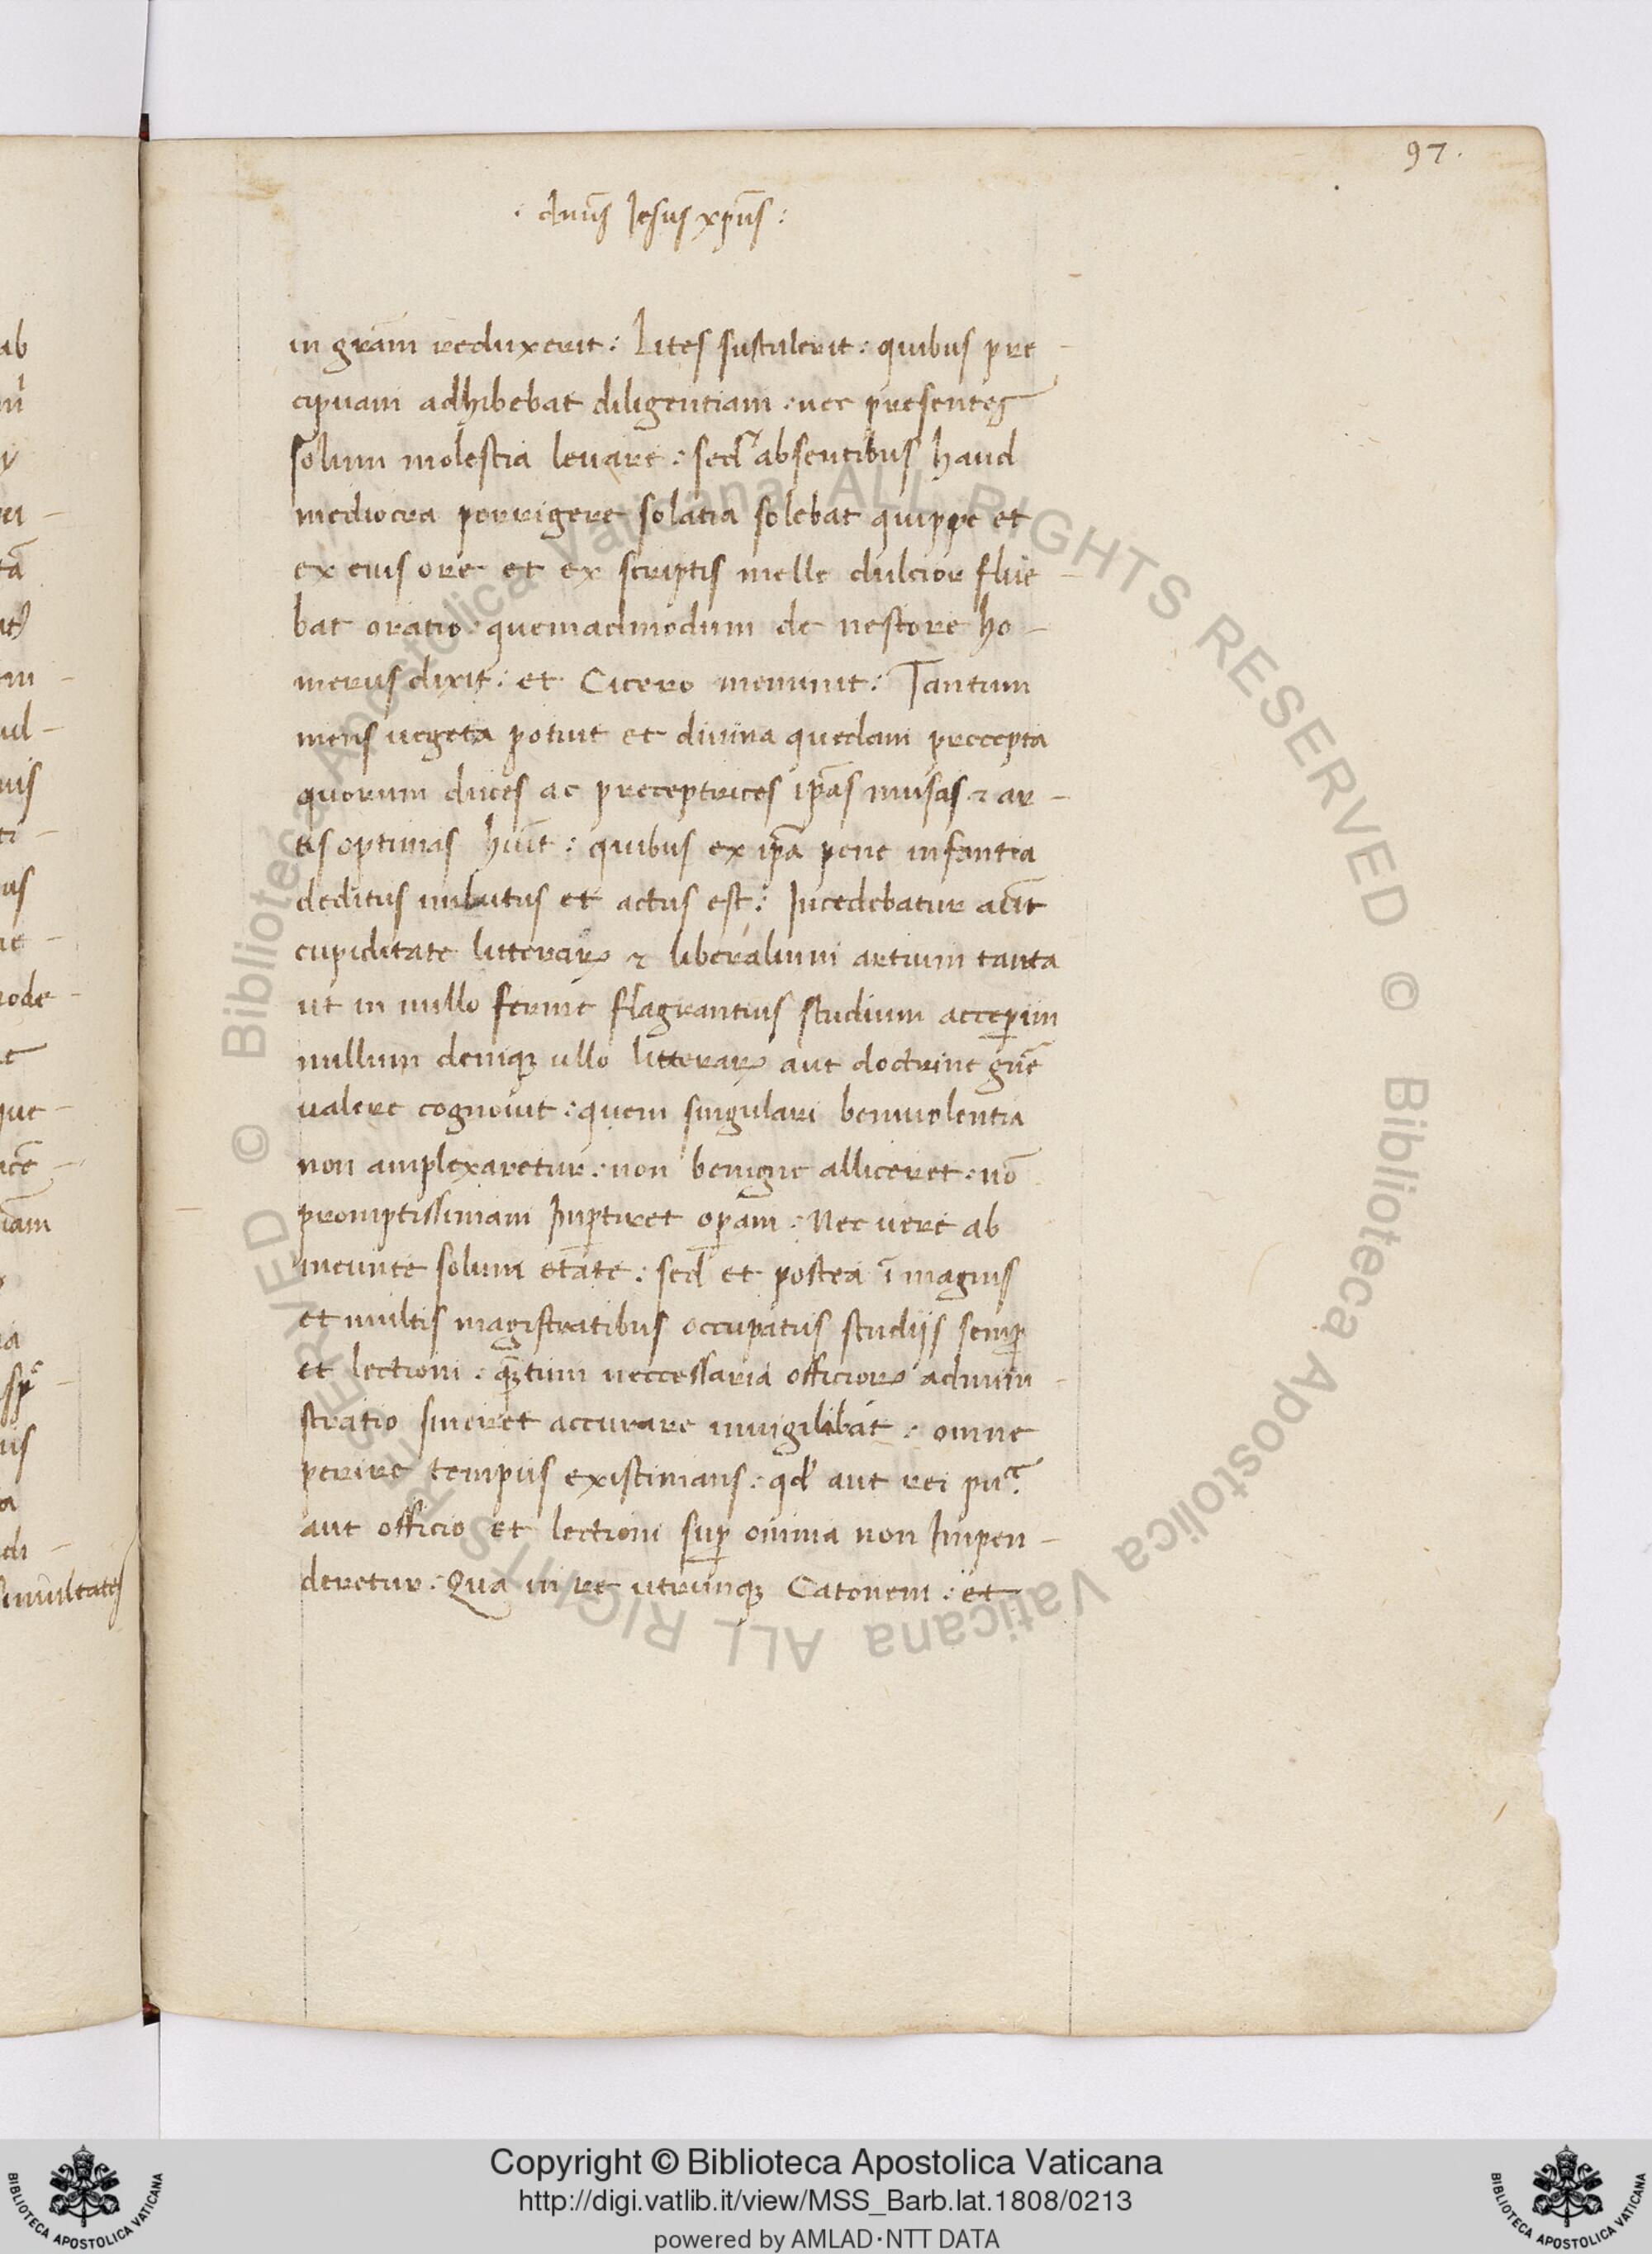 97.
: dnūs Iesus xpūs :
in grām reduxerit : Lites sustulerit : quibus pre-
cipuam adhibebat diligentiam : nec presentes
solum molestia levare : sed absentibus haud
mediocra porrigere solatia solebat quippe et
ex eius ore et ex scriptis melle dulcior flue-
bat oratio : quemadmodum de nestore ho-
merus dixit : et Cicero meminit : Tantum
mens uegeta potuit et diuina quedam precepta
quorum duces ac preceptrices ipās musas ⁊ ar-
tis optimas hūit : quibus ex ipā pene infantia
deditus imbutus et actus est : Incedebatur aūt
cupiditate litterarꝝ ⁊ liberalium artium tanta
ut in nullo ferme flagrantius studium acceperim
nullum deniqꝫ ullo litterarꝝ aut doctrine gn̄e
valere cognouit : quem singulari beniuolentia
non amplexaretur : non benigne alliceret : nō
promptissimam Imꝑtiret oꝑam : Nec uere ab
ineunte solum etāte : sed et postea ī magnis
et multis magistratibus occupatus studijs semꝑ
et lectioni : qꝫtum neccessaria officiorꝝ admini-
stratio sineret accurare inuigilibat : omne
perire tempus existimans : qd' aut rei pu.ͨᵉ
aut officio et lectioni suꝑ omnia non Impen-
deretur : Qua in re utrunqꝫ Catonem : et
ab
tā
ode-
que-
simultates
Copyright © Biblioteca Apostolica Vaticana
http://digi.vatlib.it/view/MSS_Barb.lat.1808/0213
powered by AMLAD·NTT DATA
BIBLIOTECA APOSTOLICA VATICANA
BIBLIOTECA APOSTOLICA VATICANA
© Biblioteca Apostolica Vaticana ALL RIGHTS RESERVED © Biblioteca Apostolica Vaticana ALL RIGHTS RESERVED